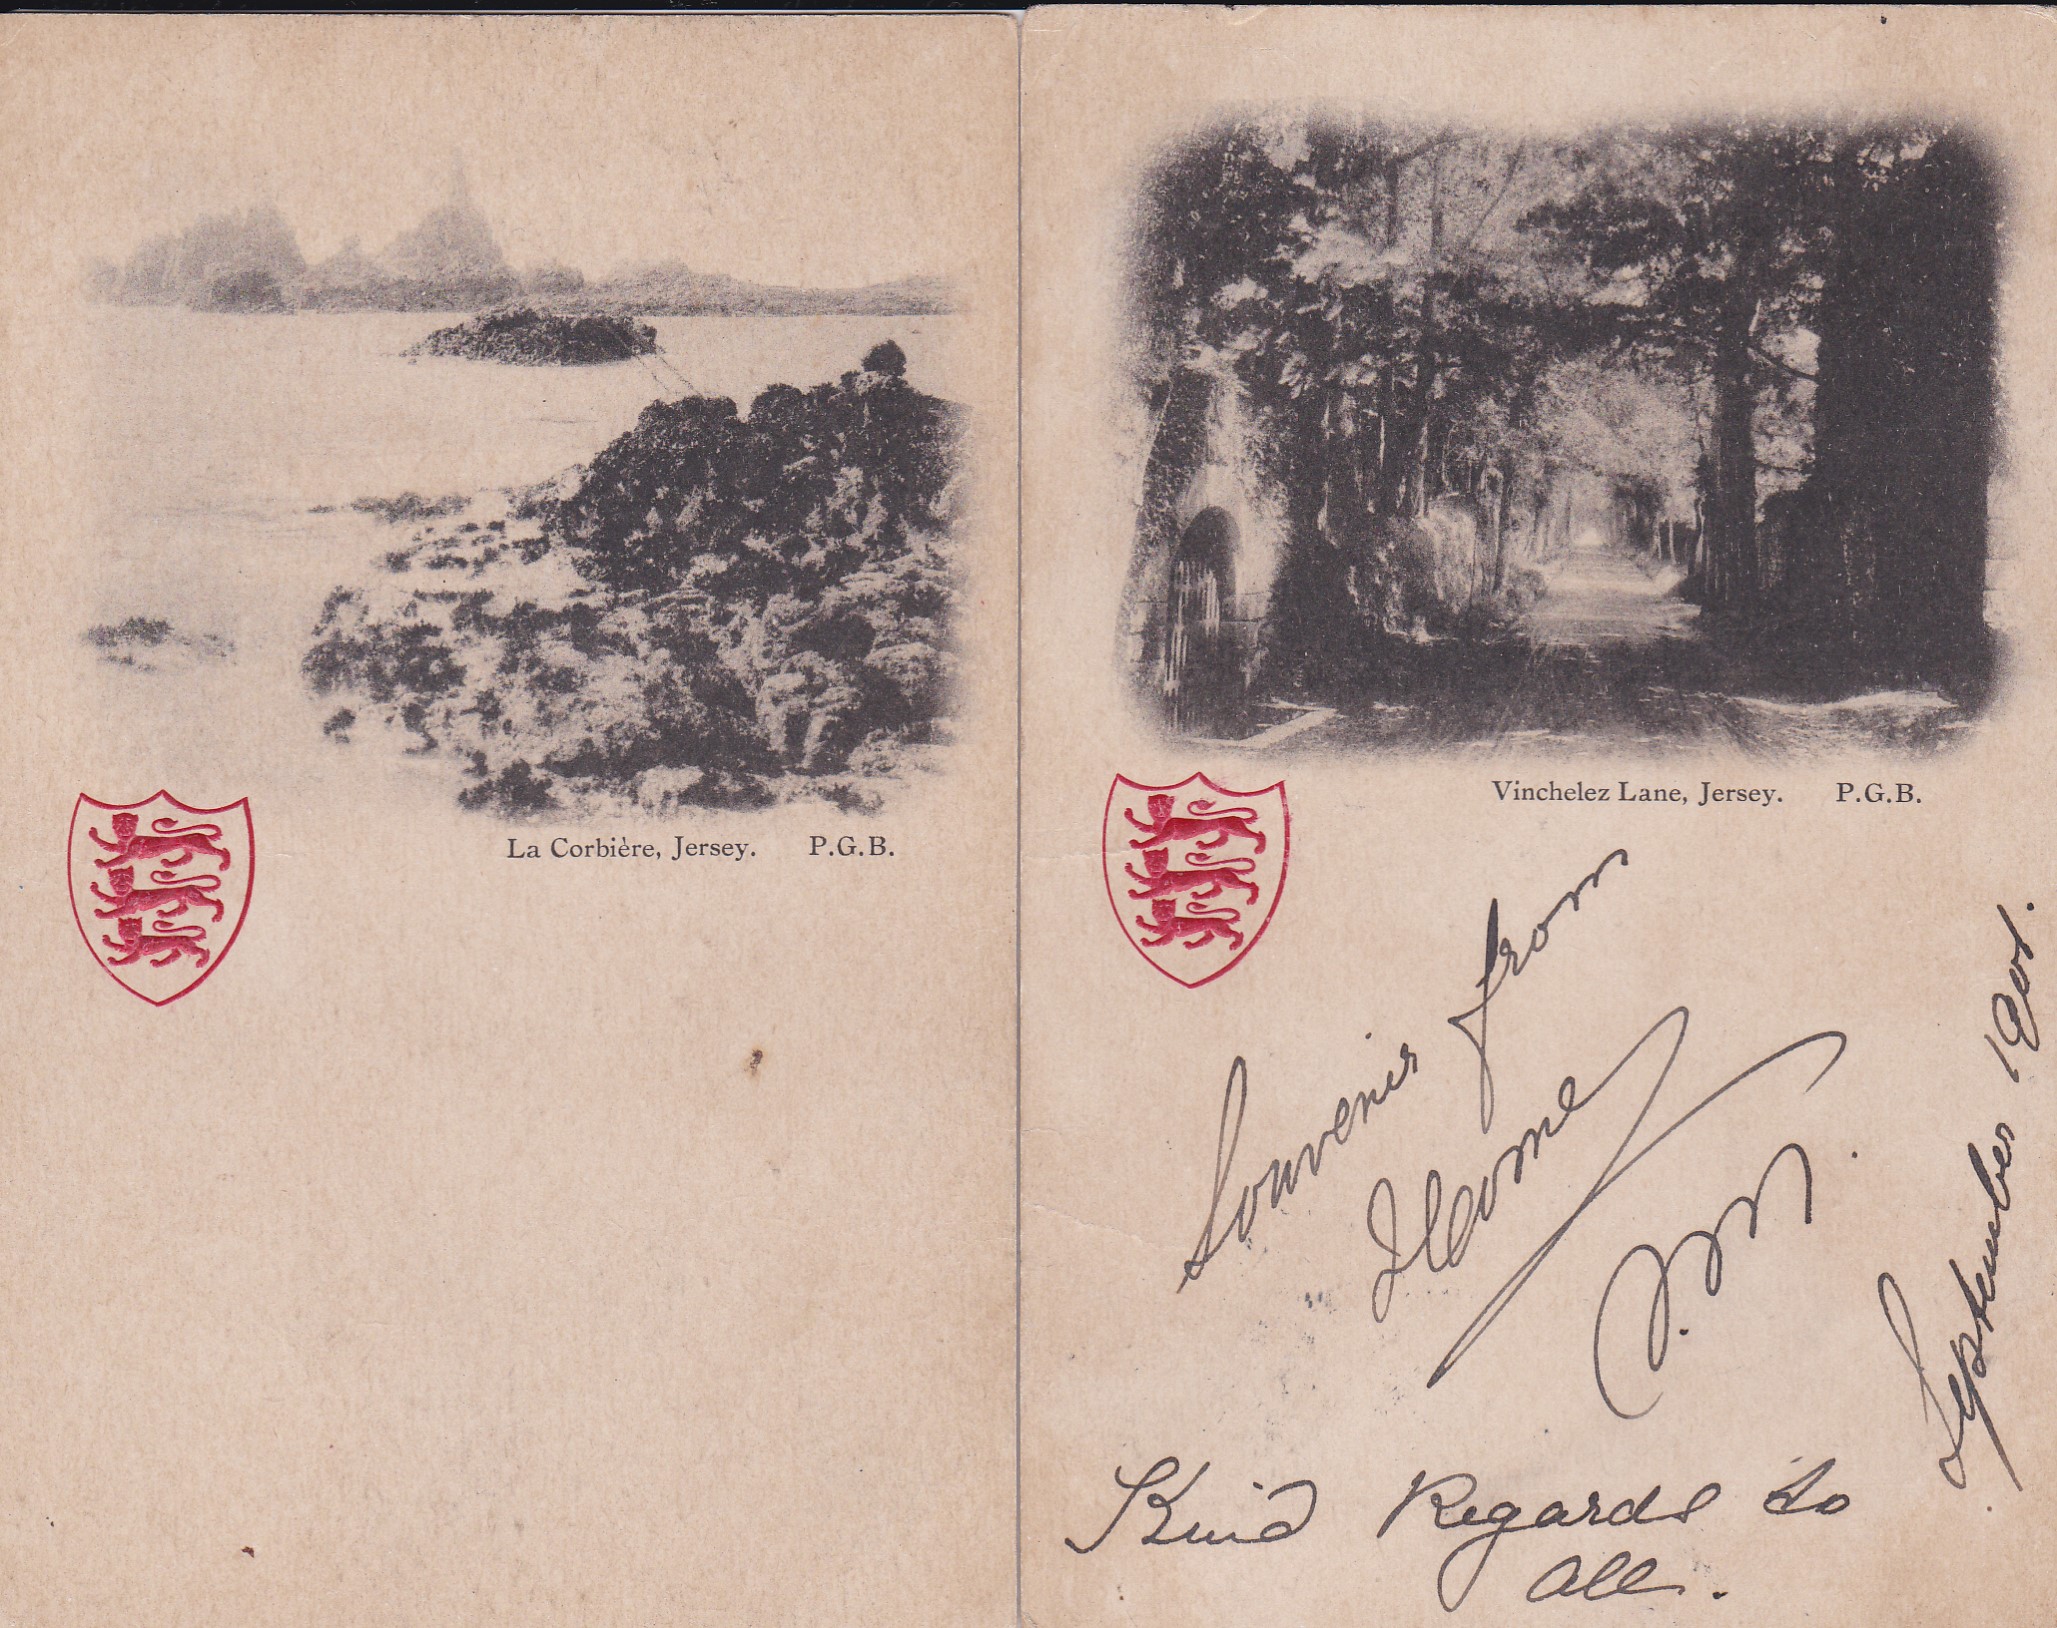 La Corbière, Jersey. P.G.B.
Vinchelez Lane, Jersey. P.G.B.
Souvenir from
Home
September 1901.
Kind Regards to
all.